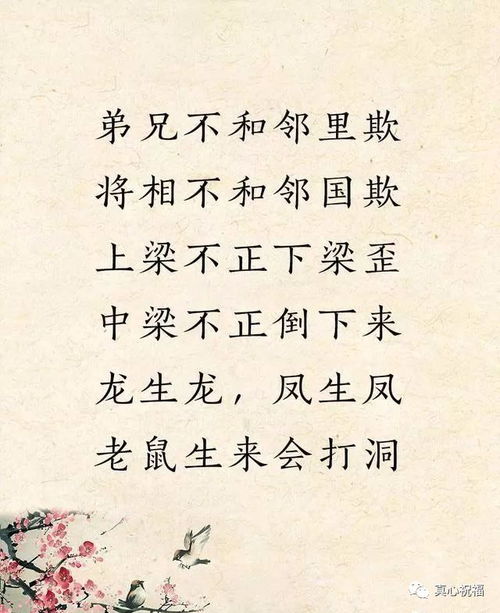 弟兄不和邻里欺
将相不和邻国欺
上梁不正下梁歪
中梁不正倒下来
龙生龙，凤生凤
老鼠生来会打洞
真心祝福